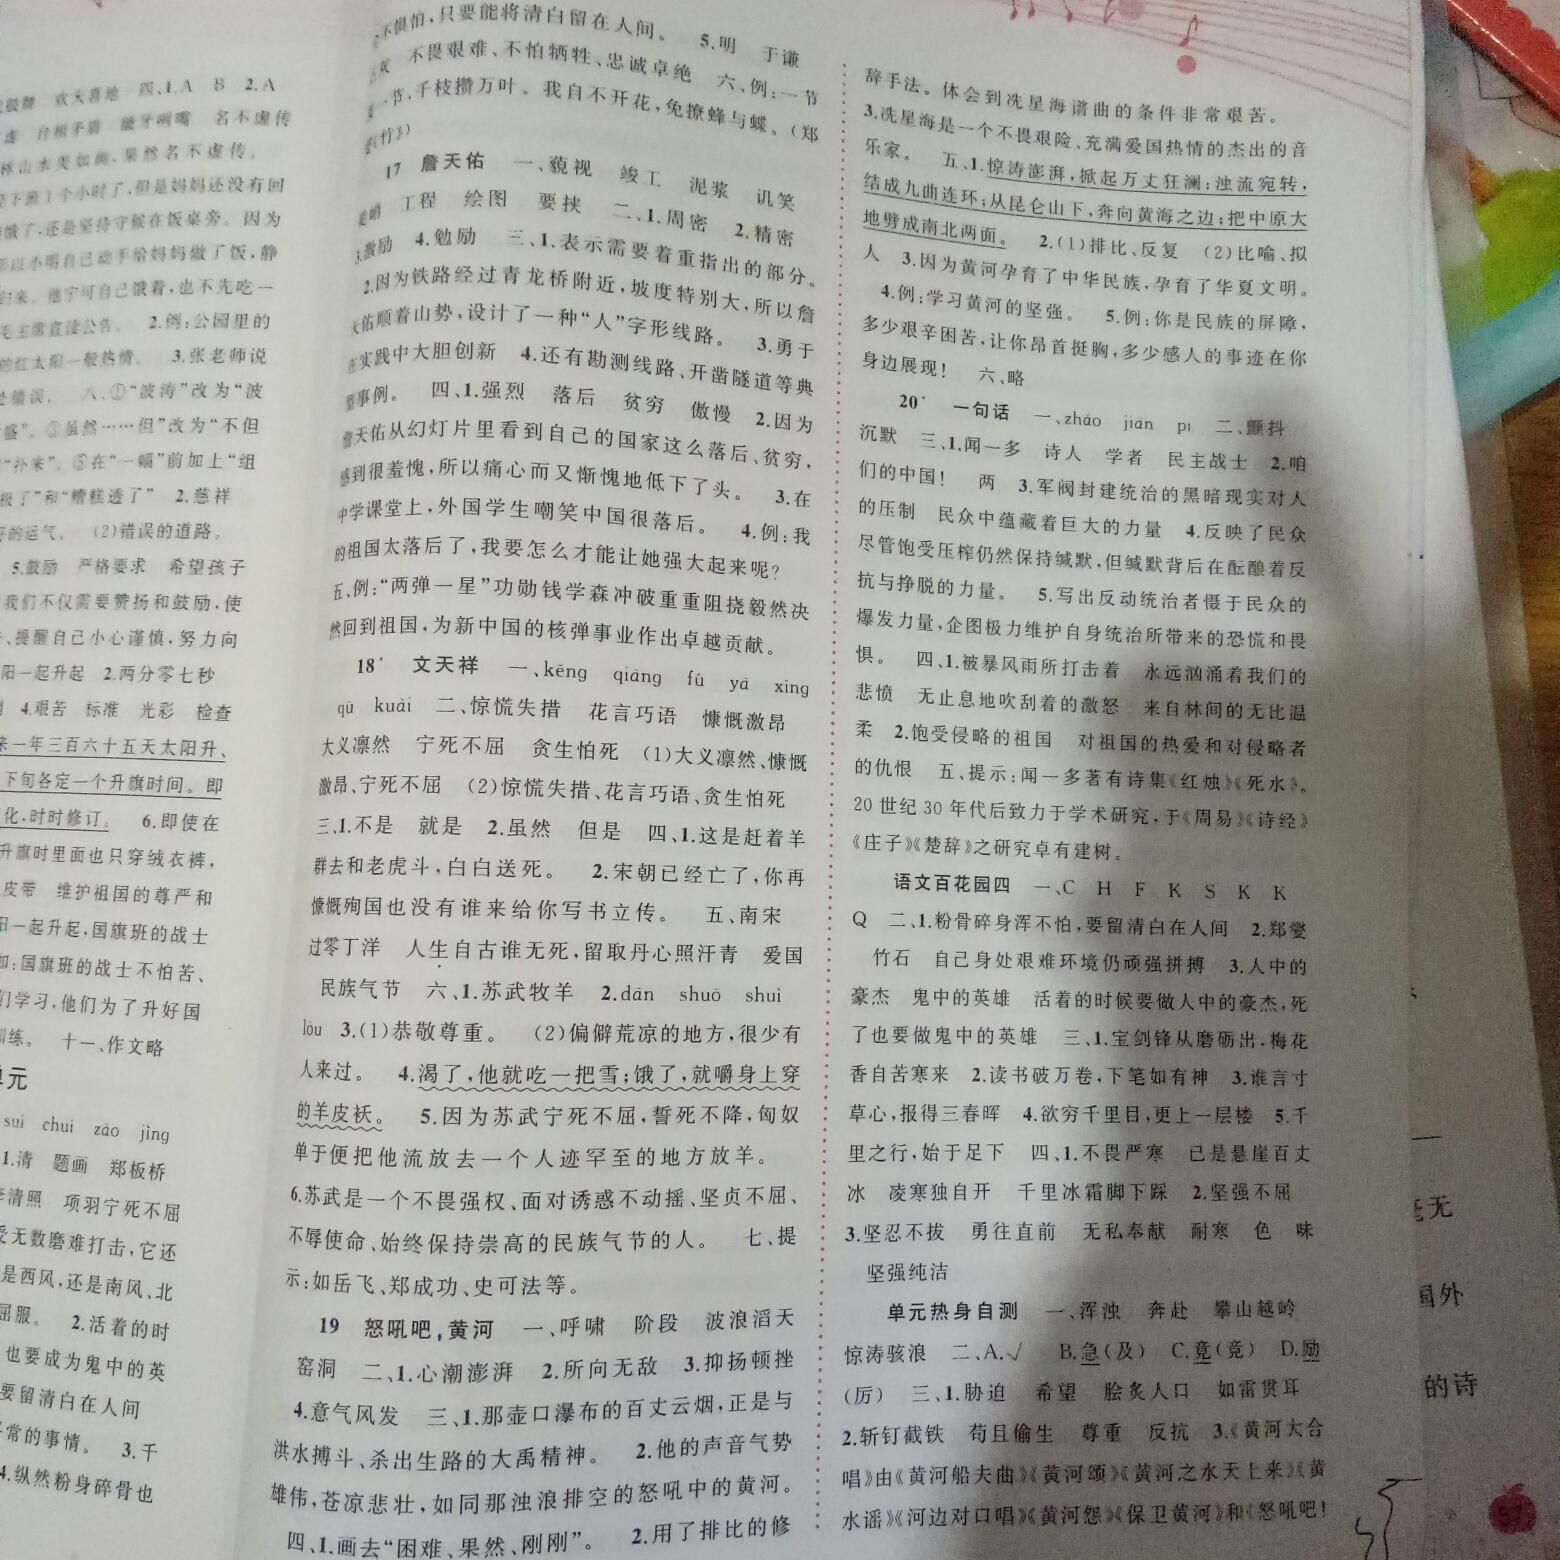 欢天喜地 四、1.A B 2.A
自相矛盾 龇牙咧嘴 名不虚传
林山水美如画,果然名不虚传。
下班1个小时了,但是妈妈还没有回
饿了,还是坚持守候在饭桌旁。因为
所以小明自己动手给妈妈做了饭,静
归来。他宁可自己饿着,也不先吃一
毛主席宣读公告。 2.例:公园里的
的红太阳一般热情。 3.张老师说
处错误。 八、①“波涛”改为“波
盛”。③虽然……但”改为“不但
“扑来”。⑤在“一幅”前加上“组
极了”和“糟糕透了” 2.慈祥
好的运气。 (2)错误的道路。
5.鼓励 严格要求 希望孩子
我们不仅需要赞扬和鼓励,使
、提醒自己小心谨慎,努力向
阳一起升起 2.两分零七秒
4.艰苦 标准 光彩 检查
来一年三百六十五天太阳升、
下旬各定一个升旗时间。即
化,时时修订。 6.即使在
升旗时里面也只穿绒衣裤,
皮带 维护祖国的尊严和
阳一起升起,国旗班的战士
如:国旗班的战士不怕苦、
们学习,他们为了升好国
训练。 十一、作文略
单元
suì chuí záo jìng
1.清 题画 郑板桥
李清照 项羽宁死不屈
受无数磨难打击,它还
是西风,还是南风、北
屈服。 2.活着的时
也要成为鬼中的英
要留清白在人间
平常的事情。 3.千
4.纵然粉身碎骨也
不惧怕,只要能将清白留在人间。 5.明 于谦
石灰 不畏艰难、不怕牺牲、忠诚卓绝 六、例:一节
复一节,千枝攒万叶。我自不开花,免撩蜂与蝶。(郑
燮《竹》)
17 詹天佑 一、藐视 竣工 泥浆 讥笑
陡峭 工程 绘图 要挟 二、1.周密 2.精密
3.激励 4.勉励 三、1.表示需要着重指出的部分。
2.因为铁路经过青龙桥附近,坡度特别大,所以詹
天佑顺着山势,设计了一种“人”字形线路。 3.勇于
在实践中大胆创新 4.还有勘测线路、开凿隧道等典
型事例。 四、1.强烈 落后 贫穷 傲慢 2.因为
詹天佑从幻灯片里看到自己的国家这么落后、贫穷,
感到很羞愧,所以痛心而又惭愧地低下了头。 3.在
中学课堂上,外国学生嘲笑中国很落后。 4.例:我
的祖国太落后了,我要怎么才能让她强大起来呢?
五、例:“两弹一星”功勋钱学森冲破重重阻挠毅然决
然回到祖国,为新中国的核弹事业作出卓越贡献。
18* 文天祥 一、kēng qiāng fú yā xíng
qū kuài 二、惊慌失措 花言巧语 慷慨激昂
大义凛然 宁死不屈 贪生怕死 (1)大义凛然、慷慨
激昂、宁死不屈 (2)惊慌失措、花言巧语、贪生怕死
三、1.不是 就是 2.虽然 但是 四、1.这是赶着羊
群去和老虎斗,白白送死。 2.宋朝已经亡了,你再
慷慨殉国也没有谁来给你写书立传。 五、南宋
过零丁洋 人生自古谁无死,留取丹心照汗青 爱国
民族气节 六、1.苏武牧羊 2.dān shuō shuì
lòu 3.(1)恭敬尊重。 (2)偏僻荒凉的地方,很少有
人来过。 4.渴了,他就吃一把雪;饿了,就嚼身上穿
的羊皮袄。 5.因为苏武宁死不屈,誓死不降,匈奴
单于便把他流放去一个人迹罕至的地方放羊。
6.苏武是一个不畏强权、面对诱惑不动摇、坚贞不屈、
不辱使命、始终保持崇高的民族气节的人。 七、提
示:如岳飞、郑成功、史可法等。
19 怒吼吧,黄河 一、呼啸 阶段 波浪滔天
窑洞 二、1.心潮澎湃 2.所向无敌 3.抑扬顿挫
4.意气风发 三、1.那壶口瀑布的百丈云烟,正是与
洪水搏斗、杀出生路的大禹精神。 2.他的声音气势
雄伟,苍凉悲壮,如同那浊浪排空的怒吼中的黄河。
四、1.画去“困难、果然、刚刚”。 2.用了排比的修
辞手法。体会到冼星海谱曲的条件非常艰苦。
3.冼星海是一个不畏艰险、充满爱国热情的杰出的音
乐家。 五、1.惊涛澎湃,掀起万丈狂澜;浊流宛转,
结成九曲连环;从昆仑山下,奔向黄海之边;把中原大
地劈成南北两面。 2.(1)排比、反复 (2)比喻、拟
人 3.因为黄河孕育了中华民族,孕育了华夏文明。
4.例:学习黄河的坚强。 5.例:你是民族的屏障,
多少艰辛困苦,让你昂首挺胸,多少感人的事迹在你
身边展现! 六、略
20* 一句话 一、zháo jiān pī 二、颤抖
沉默 三、1.闻一多 诗人 学者 民主战士 2.咱
们的中国! 两 3.军阀封建统治的黑暗现实对人
的压制 民众中蕴藏着巨大的力量 4.反映了民众
尽管饱受压榨仍然保持缄默,但缄默背后在酝酿着反
抗与挣脱的力量。 5.写出反动统治者慑于民众的
爆发力量,企图极力维护自身统治所带来的恐慌和畏
惧。 四、1.被暴风雨所打击着 永远汹涌着我们的
悲愤 无止息地吹刮着的激怒 来自林间的无比温
柔 2.饱受侵略的祖国 对祖国的热爱和对侵略者
的仇恨 五、提示:闻一多著有诗集《红烛》《死水》。
20世纪30年代后致力于学术研究,于《周易》《诗经》
《庄子》《楚辞》之研究卓有建树。
语文百花园四 一、C H F K S K K
Q 二、1.粉骨碎身浑不怕,要留清白在人间 2.郑燮
竹石 自己身处艰难环境仍顽强拼搏 3.人中的
豪杰 鬼中的英雄 活着的时候要做人中的豪杰,死
了也要做鬼中的英雄 三、1.宝剑锋从磨砺出,梅花
香自苦寒来 2.读书破万卷,下笔如有神 3.谁言寸
草心,报得三春晖 4.欲穷千里目,更上一层楼 5.千
里之行,始于足下 四、1.不畏严寒 已是悬崖百丈
冰 凌寒独自开 千里冰霜脚下踩 2.坚强不屈
3.坚忍不拔 勇往直前 无私奉献 耐寒 色 味
坚强纯洁
单元热身自测 一、浑浊 奔赴 攀山越岭
惊涛骇浪 二、A.√ B.急(及) C.竟(竞) D.励
(厉) 三、1.胁迫 希望 脍炙人口 如雷贯耳
2.斩钉截铁 苟且偷生 尊重 反抗 3.《黄河大合
唱》由《黄河船夫曲》《黄河颂》《黄河之水天上来》《黄
水谣》《河边对口唱》《黄河怨》《保卫黄河》和《怒吼吧!
无
国外
的诗